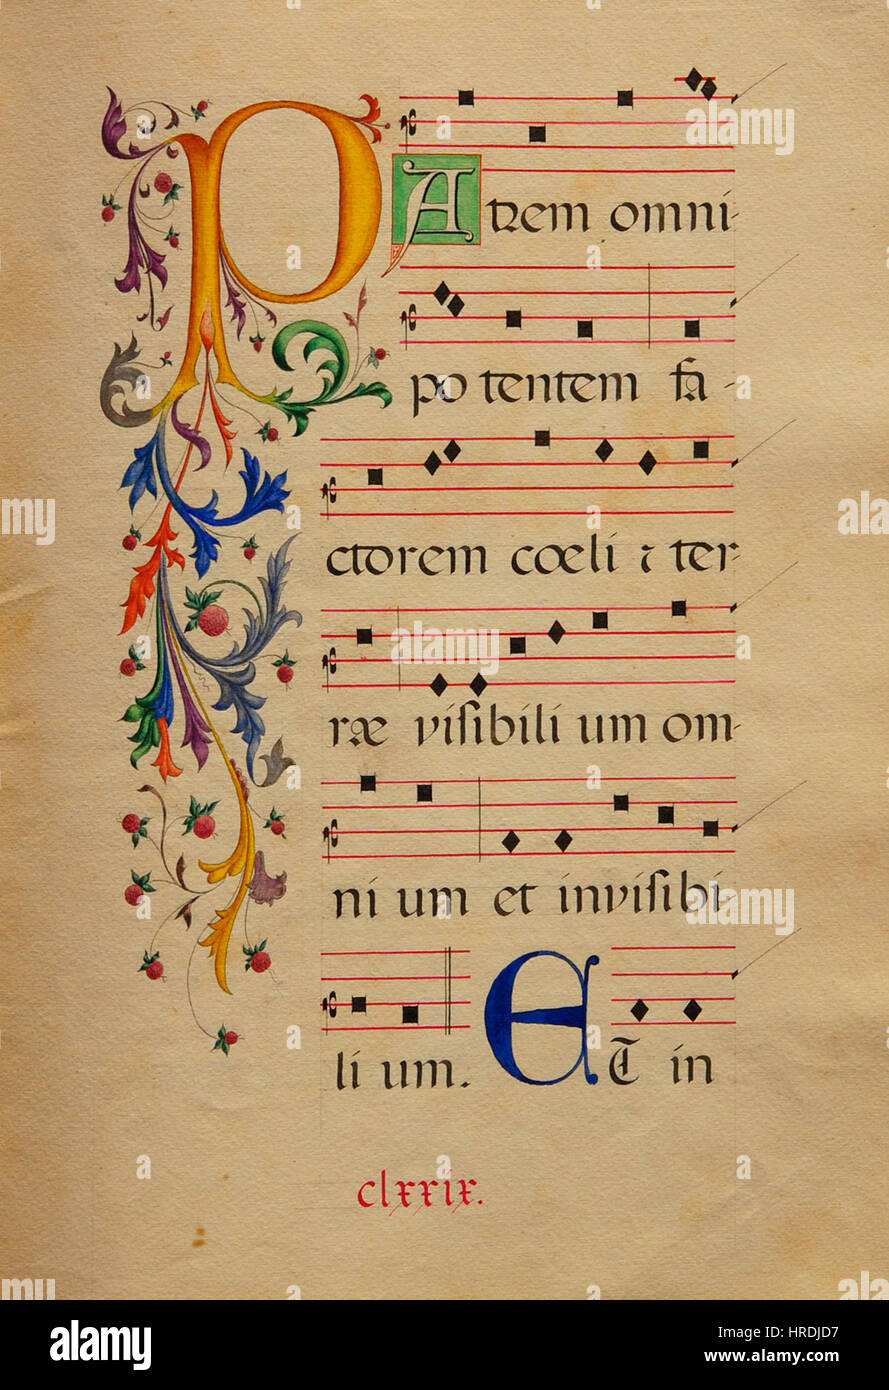 PAtrem omni-
po tentem fa-
ctorem cœli ⁊ ter-
ræ viſibili um om-
ni um et inviſibi-
li um. ET in
clxxix.
alamy
Image ID: HRDJD7
www.alamy.com